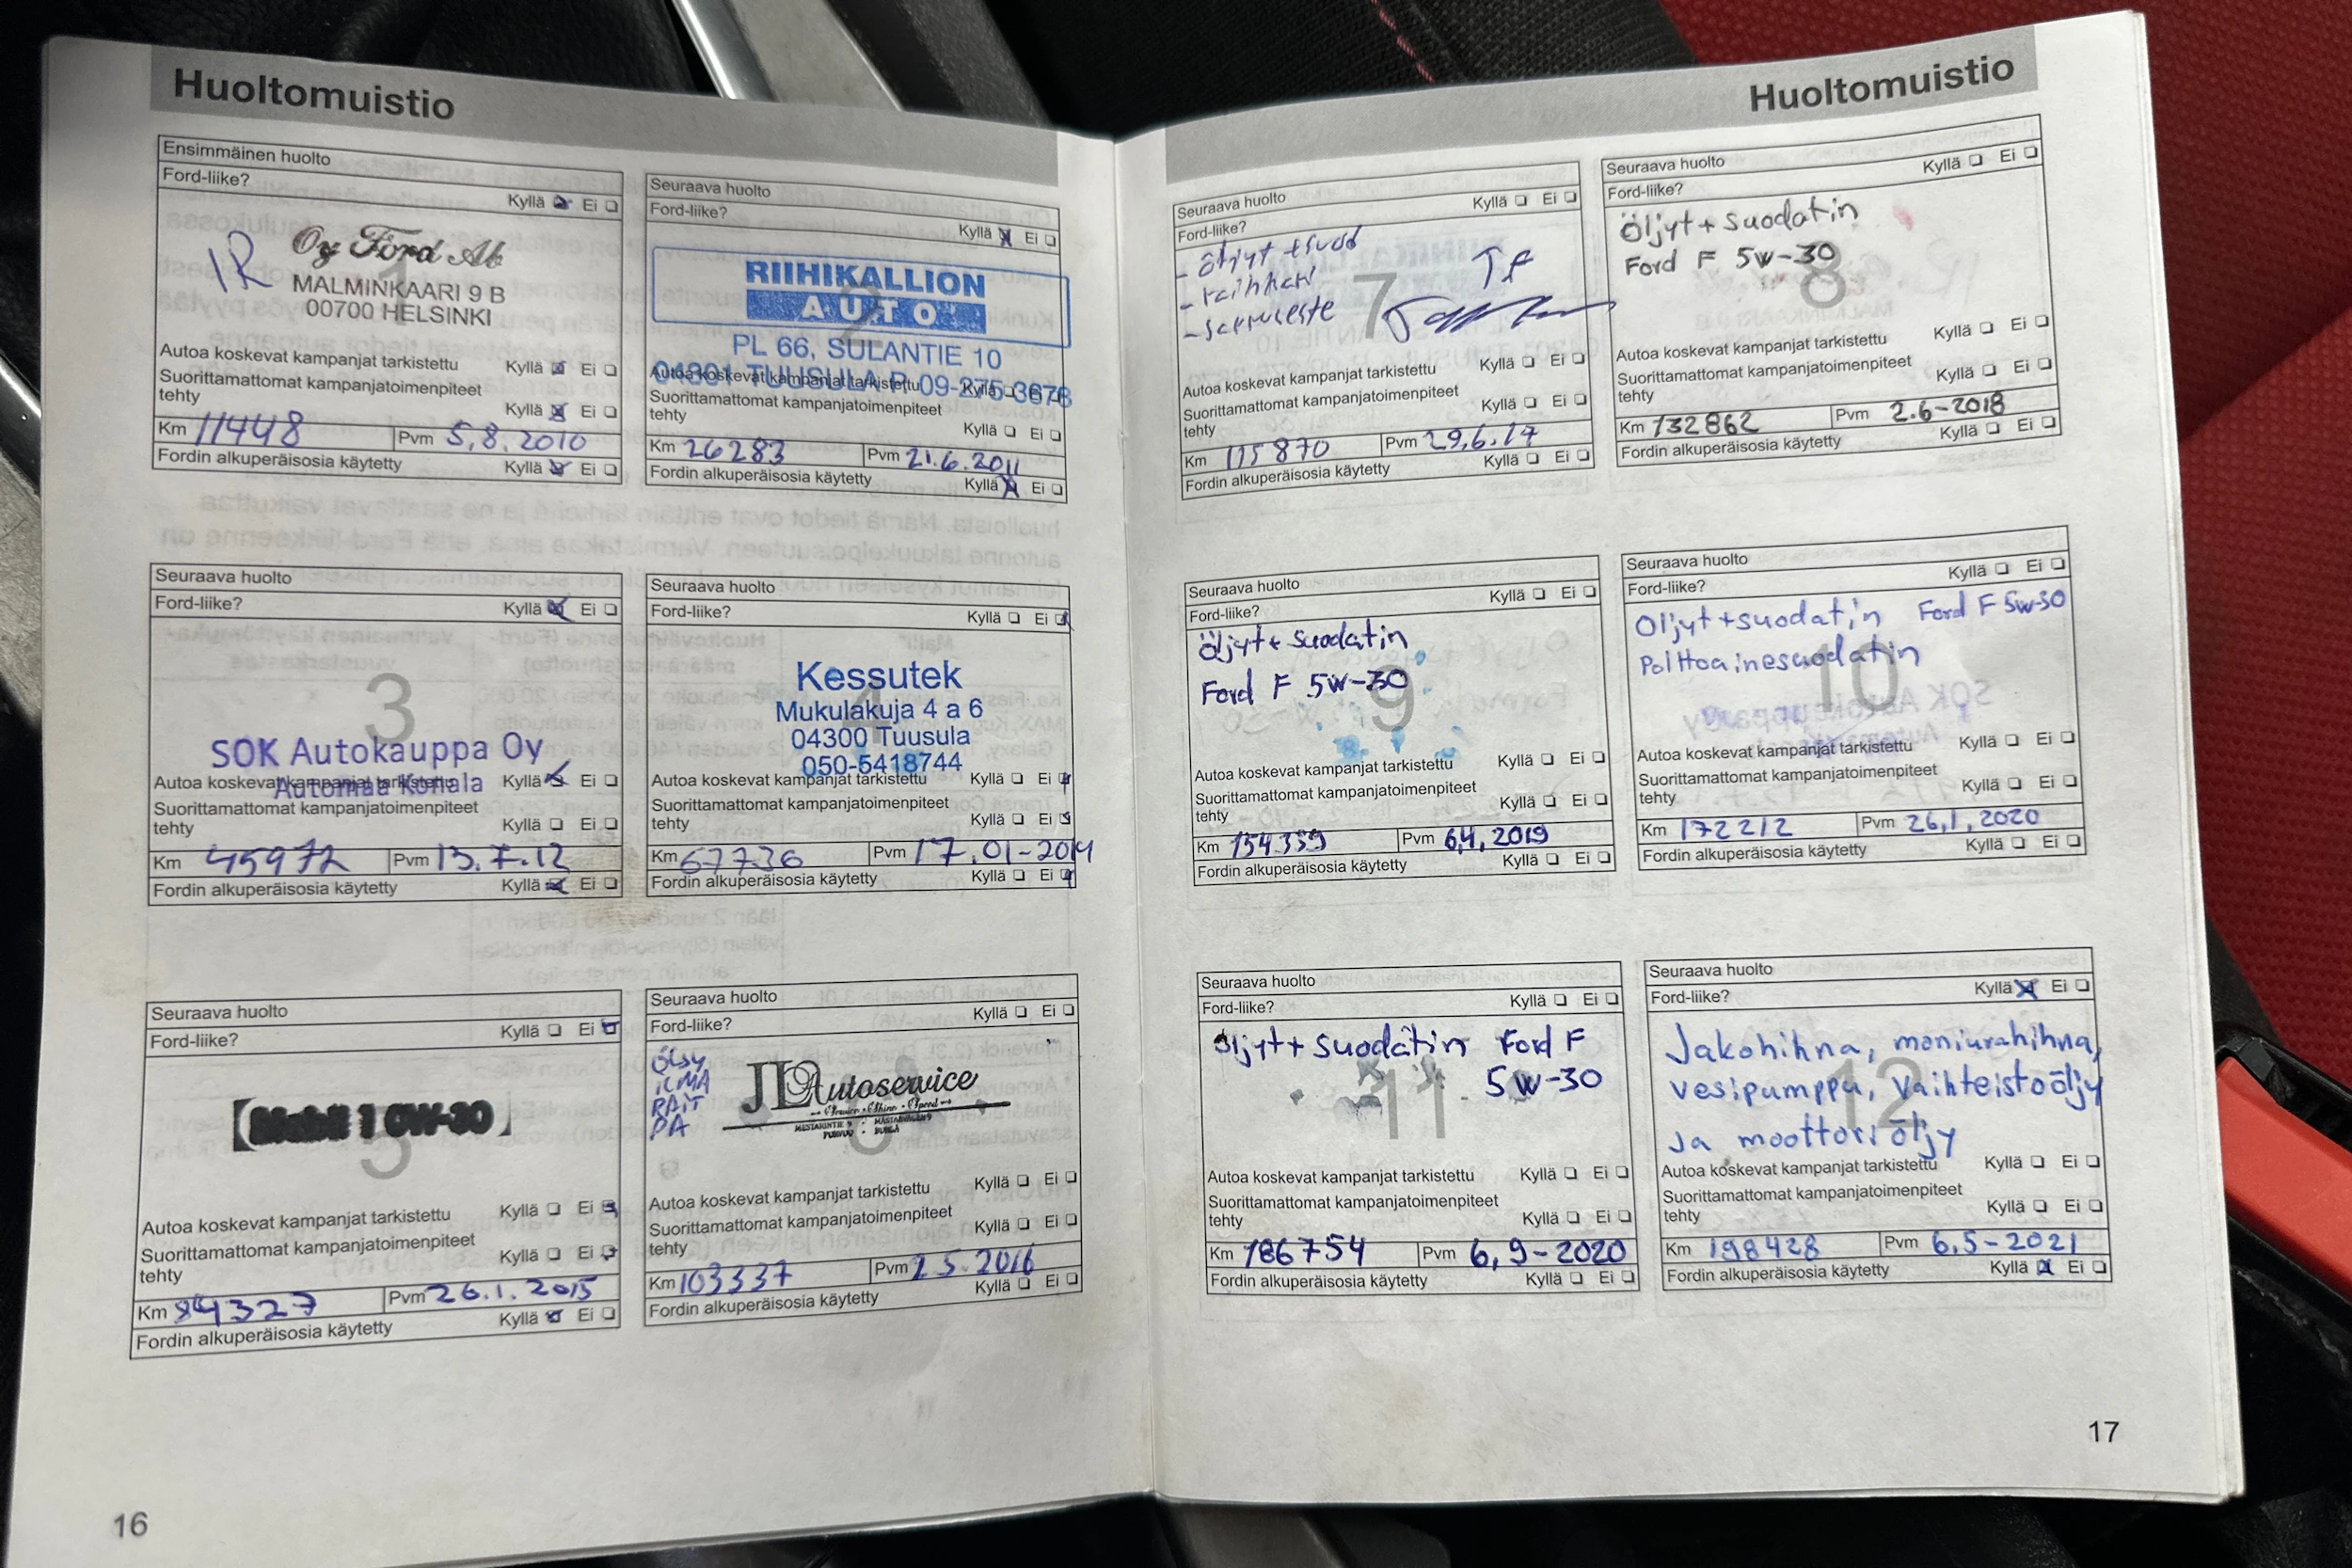 Huoltomuistio
Ensimmäinen huolto
Ford-liike?
Kyllä Ei
1
Oy Ford Ab
MALMINKAARI 9 B
00700 HELSINKI
Autoa koskevat kampanjat tarkistettu Kyllä Ei
Suorittamattomat kampanjatoimenpiteet
tehty Kyllä Ei
Km 11448 Pvm 5.8.2010
Fordin alkuperäisosia käytetty Kyllä Ei
Seuraava huolto
Ford-liike?
Kyllä Ei
2
RIIHIKALLION
AUTO
PL 66, SULANTIE 10
04301 TUUSULA P. 09-275 3678
Autoa koskevat kampanjat tarkistettu Kyllä Ei
Suorittamattomat kampanjatoimenpiteet
tehty Kyllä Ei
Km 26283 Pvm 21.6.2011
Fordin alkuperäisosia käytetty Kyllä Ei
Seuraava huolto
Ford-liike? Kyllä Ei
3
SOK Autokauppa Oy
Automaa Konala
Autoa koskevat kampanjat tarkistettu Kyllä Ei
Suorittamattomat kampanjatoimenpiteet
tehty Kyllä Ei
Km 45972 Pvm 13.7.12
Fordin alkuperäisosia käytetty Kyllä Ei
Seuraava huolto
Ford-liike? Kyllä Ei
4
Kessutek
Mukulakuja 4 a 6
04300 Tuusula
050-5418744
Autoa koskevat kampanjat tarkistettu Kyllä Ei
Suorittamattomat kampanjatoimenpiteet
tehty Kyllä Ei
Km 67736 Pvm 17.01-2014
Fordin alkuperäisosia käytetty Kyllä Ei
Seuraava huolto
Ford-liike? Kyllä Ei
5
Mobil 1 0W-30
Autoa koskevat kampanjat tarkistettu Kyllä Ei
Suorittamattomat kampanjatoimenpiteet
tehty Kyllä Ei
Km 84327 Pvm 26.1.2015
Fordin alkuperäisosia käytetty Kyllä Ei
Seuraava huolto
Ford-liike? Kyllä Ei
6
ÖLJY
ILMA
RAIT
PA
JL Autoservice
Autoa koskevat kampanjat tarkistettu Kyllä Ei
Suorittamattomat kampanjatoimenpiteet
tehty Kyllä Ei
Km 103337 Pvm 2.5.2016
Fordin alkuperäisosia käytetty Kyllä Ei
16
Huoltomuistio
Seuraava huolto
Ford-liike? Kyllä Ei
7
- öljyt + suod
- raihhari
Autoa koskevat kampanjat tarkistettu Kyllä Ei
Suorittamattomat kampanjatoimenpiteet
tehty Kyllä Ei
Km 115870 Pvm 29.6.17
Fordin alkuperäisosia käytetty Kyllä Ei
Seuraava huolto
Ford-liike? Kyllä Ei
8
Öljyt + suodatin
Ford F 5W-30
Autoa koskevat kampanjat tarkistettu Kyllä Ei
Suorittamattomat kampanjatoimenpiteet
tehty Kyllä Ei
Km 132862 Pvm 2.6-2018
Fordin alkuperäisosia käytetty Kyllä Ei
Seuraava huolto
Ford-liike? Kyllä Ei
9
Öljyt + suodatin
Ford F 5W-30
Autoa koskevat kampanjat tarkistettu Kyllä Ei
Suorittamattomat kampanjatoimenpiteet
tehty Kyllä Ei
Km 154339 Pvm 6.4.2019
Fordin alkuperäisosia käytetty Kyllä Ei
Seuraava huolto
Ford-liike? Kyllä Ei
10
Öljyt + suodatin Ford F 5W-30
Polttoainesuodatin
Autoa koskevat kampanjat tarkistettu Kyllä Ei
Suorittamattomat kampanjatoimenpiteet
tehty Kyllä Ei
Km 172212 Pvm 26.1.2020
Fordin alkuperäisosia käytetty Kyllä Ei
Seuraava huolto
Ford-liike? Kyllä Ei
11
Öljyt + suodatin Ford F
5W-30
Autoa koskevat kampanjat tarkistettu Kyllä Ei
Suorittamattomat kampanjatoimenpiteet
tehty Kyllä Ei
Km 186754 Pvm 6.9-2020
Fordin alkuperäisosia käytetty Kyllä Ei
Seuraava huolto
Ford-liike? Kyllä Ei
12
Jakohihna, moniurahihna,
vesipumppu, Vaihteistoöljy
ja moottoriöljy
Autoa koskevat kampanjat tarkistettu Kyllä Ei
Suorittamattomat kampanjatoimenpiteet
tehty Kyllä Ei
Km 198428 Pvm 6.5-2021
Fordin alkuperäisosia käytetty Kyllä Ei
17